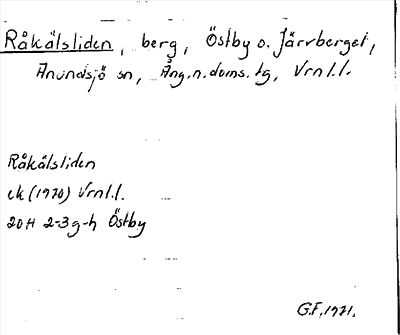 Råkälsliden, berg, Östby o. Järvberget,
Anundsjö sn, Ång.n.doms.tg, Vrnl.l.
Råkälsliden
ek (1970) Vrnl.l.
20H 2-3g-h Östby
G.F. 1971.